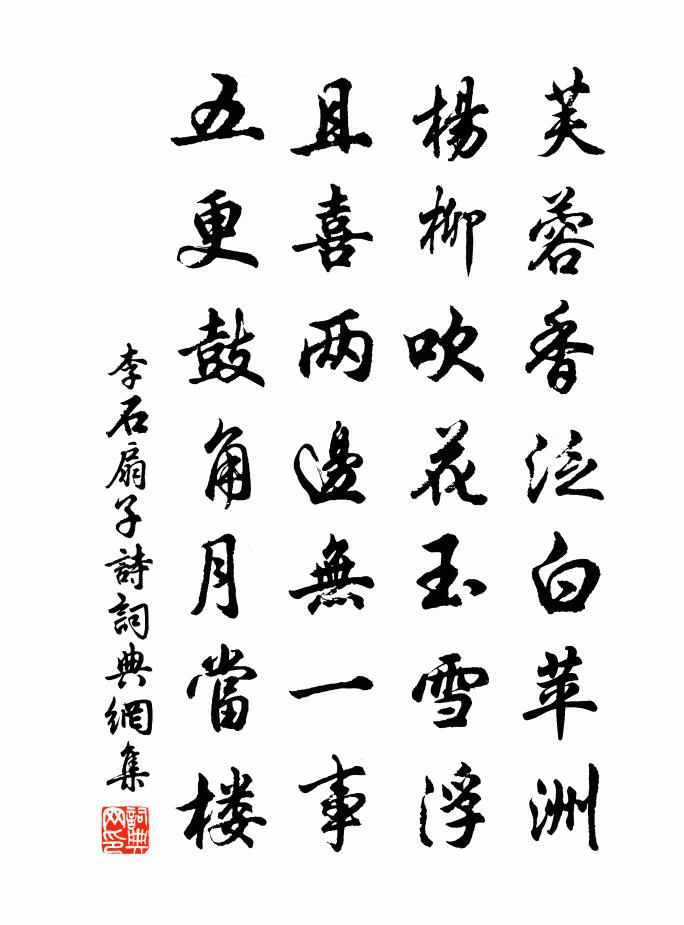 芙蓉香泛白苹洲
楊柳吹花玉雪浮
且喜两邊無一事
五更鼓角月當楼
李石扇子詩詞典網集
詞典网印